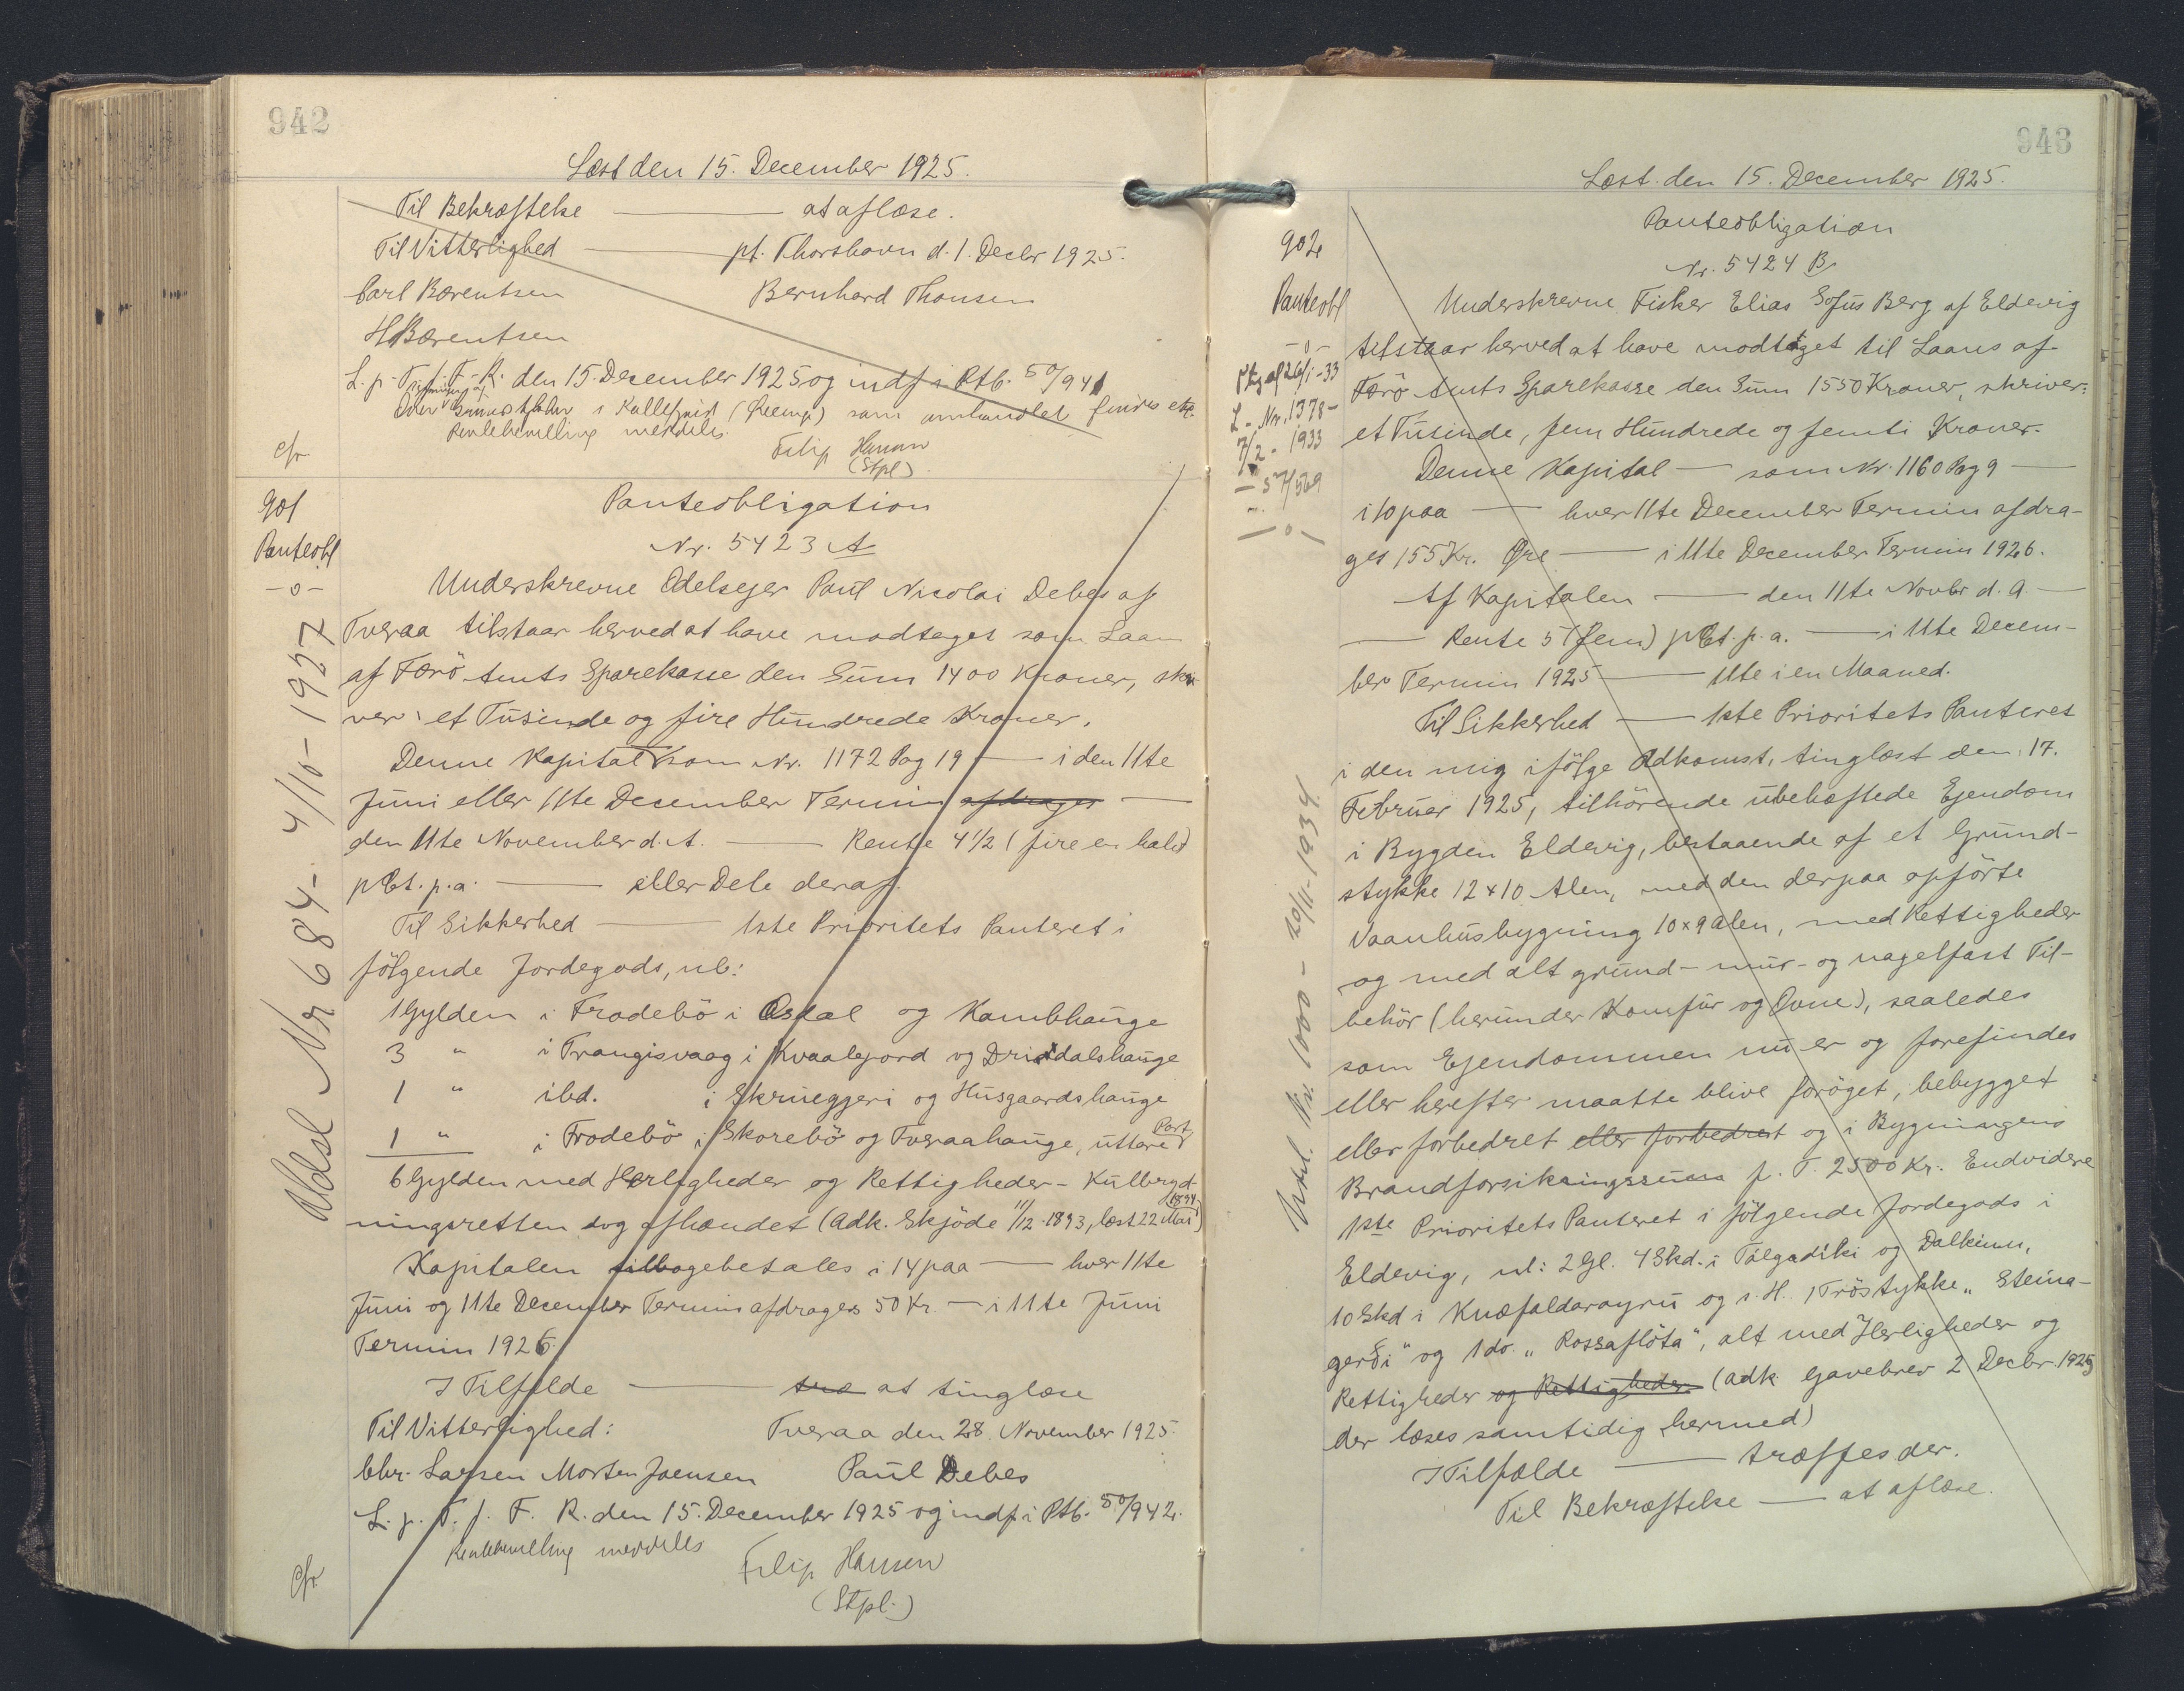 942
Læst den 15. December 1925.
Til Bekræftelse — at aflæse.
Til Vitterlighed — pt. Thorshavn d. 1. Decbr 1925.
Carl Bærentsen Bernhard Thomsen
H Bærentsen
L. p. T. f. F. R. den 15. December 1925 og indf i Ptb. 50/941
i Kollefjord som omhandlet findes etc.
Rentebevilling meddeles.
Filip Hansen
(Stpl)
cfr
901
Panteobl
-o-
Panteobligation
Nr. 5423 A
Underskrevne Odelsejer Paul Nicolai Debes af
Tveraa tilstaar herved at have modtaget som Laan
af Færö Amts Sparekasse den Sum 1400 Kroner, skri-
ver: et Tusinde og fire Hundrede Kroner.
Denne Kapital som Nr. 1172 Pag 19 — i den 11te
Juni eller 11te December Termin afdrages —
den 11te November d. A. — Rente 4 1/2 (fire en halv)
pCt. p. a. — eller Dele deraf.
Til Sikkerhed — 1ste Prioritets Panteret i
følgende Jordegods, nl:
1 Gylden i Frodebö i Osdal og Kambhauge
3 " i Trangisvaag i Kvaalejord og Dristdalshauge
1 " ibd. i Skrueggeri og Husgaardshauge
1 " i Frodebö i Skorebö og Tveraahauge, uttare Part
6 Gylden med Herligheder og Rettigheder - Kulbryd-
ningsretten dog afhændet (Adk. Skjöde 11/12 1893, læst 22 Mai 1894)
Kapitalen tilbagebetales i 14 paa — hver 11te
Juni og 11te December Termin afdrages 50 Kr. — i 11te Juni
Termin 1926.
I Tilfælde — træ at tinglæse
Til Vitterlighed: Tveraa den 28. November 1925.
Chr. Larsen Morten Joensen Paul Debes
L. p. T. f. F. R. den 15. December 1925 og indf i Ptb. 50/942.
Rentebevilling meddeles
Filip Hansen
(Stpl.)
cfr
Udsl Nr 684- 4/10-1927
943
Læst den 15. December 1925.
902
Panteobl
-o-
Ptg af 26/1-33
L. Nr. 1378-
7/2 - 1933
- 57/569
-o-
Udsl. Nr. 1000 - 20/11-1934
Panteobligation
Nr. 5424 B
Underskrevne Fisker Elias Sofus Berg af Eldevig
tilstaar herved at have modtaget til Laans af
Færö Amts Sparekasse den Sum 1550 Kroner, skriver:
et Tusinde, fem Hundrede og femti Kroner.
Denne Kapital — som Nr. 1160 Pag 9 —
i 10 paa — hver 11te December Termin afdra-
ges 155 Kr. Øre — i 11te December Termin 1926.
Af Kapitalen — den 11te Novbr d. A. —
— Rente 5 (fem) pCt. p. a. — i 11te Decem-
ber Termin 1925 — 11te i en Maaned.
Til Sikkerhed — 1ste Prioritets Panteret
i den mig ifölge Adkomst, tinglæst den 17.
Februar 1925, tilhörende ubehæftede Ejendom
i Bygden Eldevig, bestaaende af et Grund-
stykke 12 x 10 Alen, med den derpaa opförte
Vaanhusbygning 10 x 9 Alen, med Rettigheder
og med alt grund- mur- og nagelfast Til-
behör (herunder Komfur og Ovne), saaledes
som Ejendommen nu er og forefindes
eller herefter maatte blive foröget, bebygget
eller forbedret eller forbedret og i Bygningens
Brandforsikringssum p. T. 2500 Kr. Endvidere
1ste Prioritets Panteret i fölgende Jordegods i
Eldevig, nl: 2 Gl. 4 Skd. i Tálgadiki og Dalkinn,
10 Skd i Knæfaldaroyru og s. H. 1 Tröstykke „Steina-
gerði" og 1 do. „Rossaflöta", alt med Herligheder og
Rettigheder og Rettigheder (Adk. Gavebrev 2 Decbr. 1925
der læses samtidig hermed)
I Tilfælde — træffes der.
Til Bekræftelse — at aflæse.